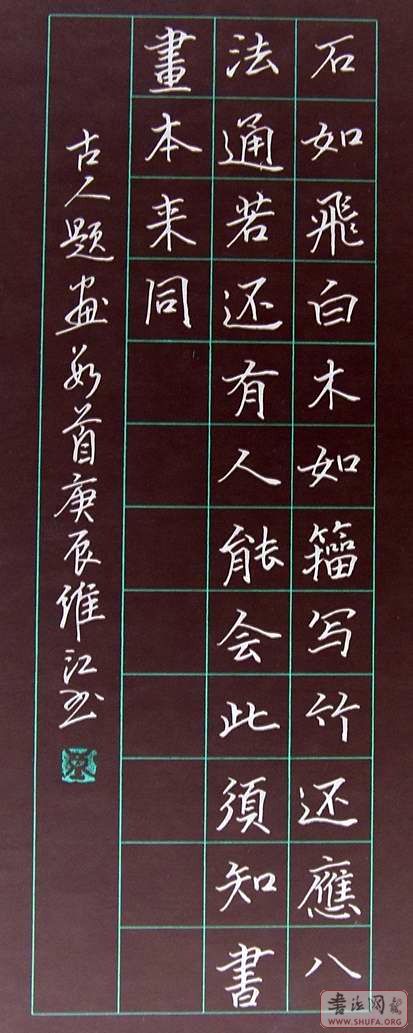 石如飛白木如籀写竹还應八
法通若还有人能会此須知書
畫本来同
古人题画首庚辰维江书
書法网
WWW.SHUFA.ORG